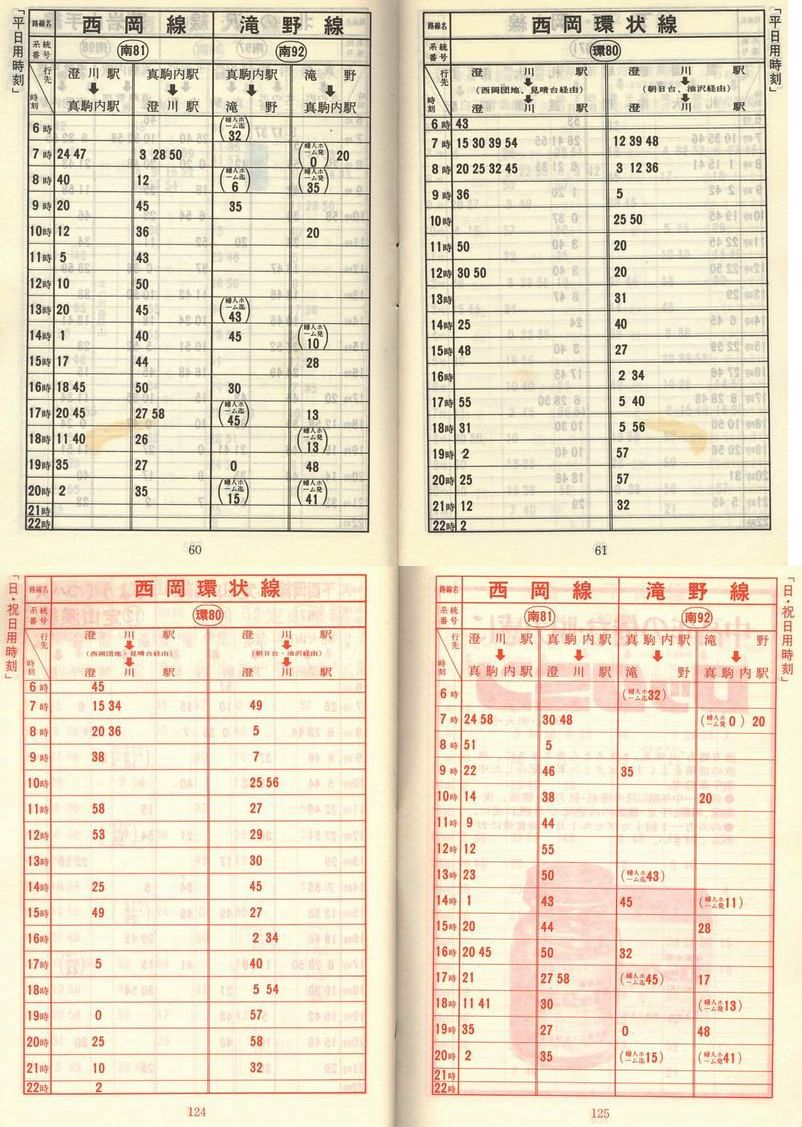 「平日用時刻」
路線名 西岡線 滝野線
系統番号 南81 南92
行先 時刻 澄川駅 真駒内駅 真駒内駅 滝野
真駒内駅 澄川駅 滝野 真駒内駅
6時 (婦人ホーム迄32)
7時 24 47 3 28 50 (婦人ホーム発0) 20
8時 40 12 (婦人ホーム迄6) (婦人ホーム発35)
9時 20 45 35
10時 12 36 20
11時 5 43
12時 10 50
13時 20 45 (婦人ホーム迄43)
14時 1 40 45 (婦人ホーム発10)
15時 17 44 28
16時 18 45 50 30
17時 20 45 27 58 (婦人ホーム迄45) 13
18時 11 40 26 (婦人ホーム発13)
19時 35 27 0 48
20時 2 35 (婦人ホーム迄15) (婦人ホーム発41)
21時
22時
60
「平日用時刻」
路線名 西岡環状線
系統番号 環80
行先 時刻 澄川駅 澄川駅
(西岡団地、見晴台経由) (朝日台、滝沢経由)
澄川駅 澄川駅
6時 43
7時 15 30 39 54 12 39 48
8時 20 25 32 45 3 12 36
9時 36 5
10時 25 50
11時 50 20
12時 30 50 20
13時 31
14時 25 40
15時 48 27
16時 2 34
17時 55 5 40
18時 31 5 56
19時 2 57
20時 25 57
21時 12 32
22時 2
61
「日・祝日用時刻」
路線名 西岡環状線
系統番号 環80
行先 時刻 澄川駅 澄川駅
(西岡団地・見晴台経由) (朝日台・滝沢経由)
澄川駅 澄川駅
6時 45
7時 15 34 49
8時 20 36 5
9時 38 7
10時 25 56
11時 58 27
12時 53 29
13時 30
14時 25 45
15時 49 27
16時 2 34
17時 5 40
18時 5 54
19時 0 57
20時 25 58
21時 10 32
22時 2
124
「日・祝日用時刻」
路線名 西岡線 滝野線
系統番号 南81 南92
行先 時刻 澄川駅 真駒内駅 真駒内駅 滝野
真駒内駅 澄川駅 滝野 真駒内駅
6時 (婦人ホーム迄32)
7時 24 58 30 48 (婦人ホーム発0) 20
8時 51 5
9時 22 46 35
10時 14 38 20
11時 9 44
12時 12 55
13時 23 50 (婦人ホーム迄43)
14時 1 43 45 (婦人ホーム発11)
15時 20 44 28
16時 20 45 50 32
17時 21 27 58 (婦人ホーム迄45) 17
18時 11 41 30 (婦人ホーム発13)
19時 35 27 0 48
20時 2 35 (婦人ホーム迄15) (婦人ホーム発41)
21時
22時
125